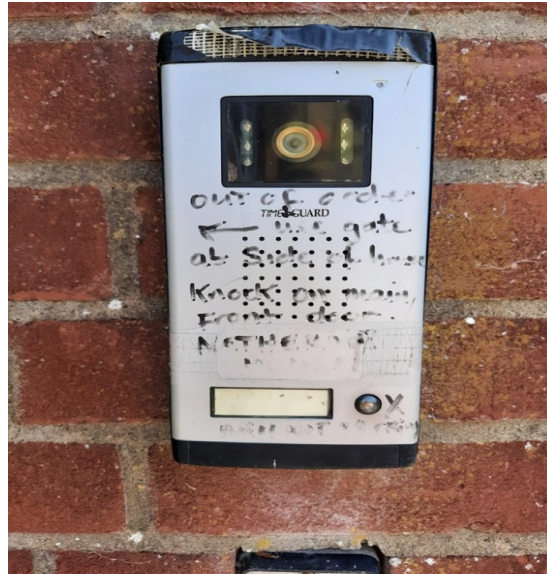 out of order
TIMEGUARD
← use gate
at side of house
Knock on main
Front door
X